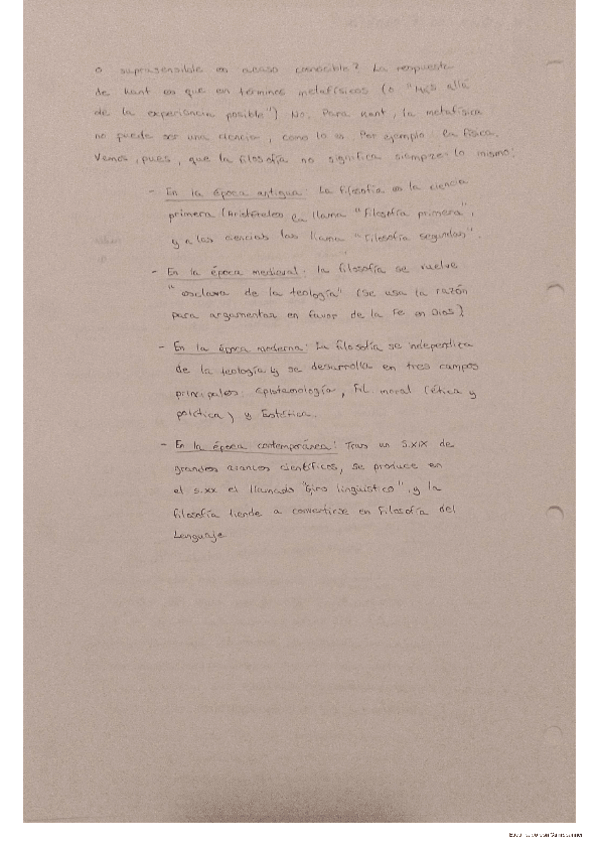 o suprasensible es acaso conocible? La respuesta
de Kant es que en términos metafísicos (o "Más allá
de la experiencia posible") No. Para Kant, la metafísica
no puede ser una ciencia, como lo es. Por ejemplo: la física.
Vemos, pues, que la filosofía no significa siempre lo mismo:
- En la época antigua: La filosofía es la ciencia
primera (Aristóteles la llama "Filosofía primera",
y a las ciencias las llama "Filosofía segundas".
- En la época medieval: la filosofía se vuelve
"esclava de la teología" (se usa la razón
para argumentos en favor de la Fe en Dios)
- En la época moderna: La filosofía se independiza
de la teología y se desarrolla en tres campos
principales: Epistemología, Fil. moral (ética y
política) y Estética.
- En la época contemporánea: Tras un S.XIX de
grandes avances científicos, se produce en
el S.XX el llamado "Giro lingüístico", y la
filosofía tiende a convertirse en Filosofía del
Lenguaje